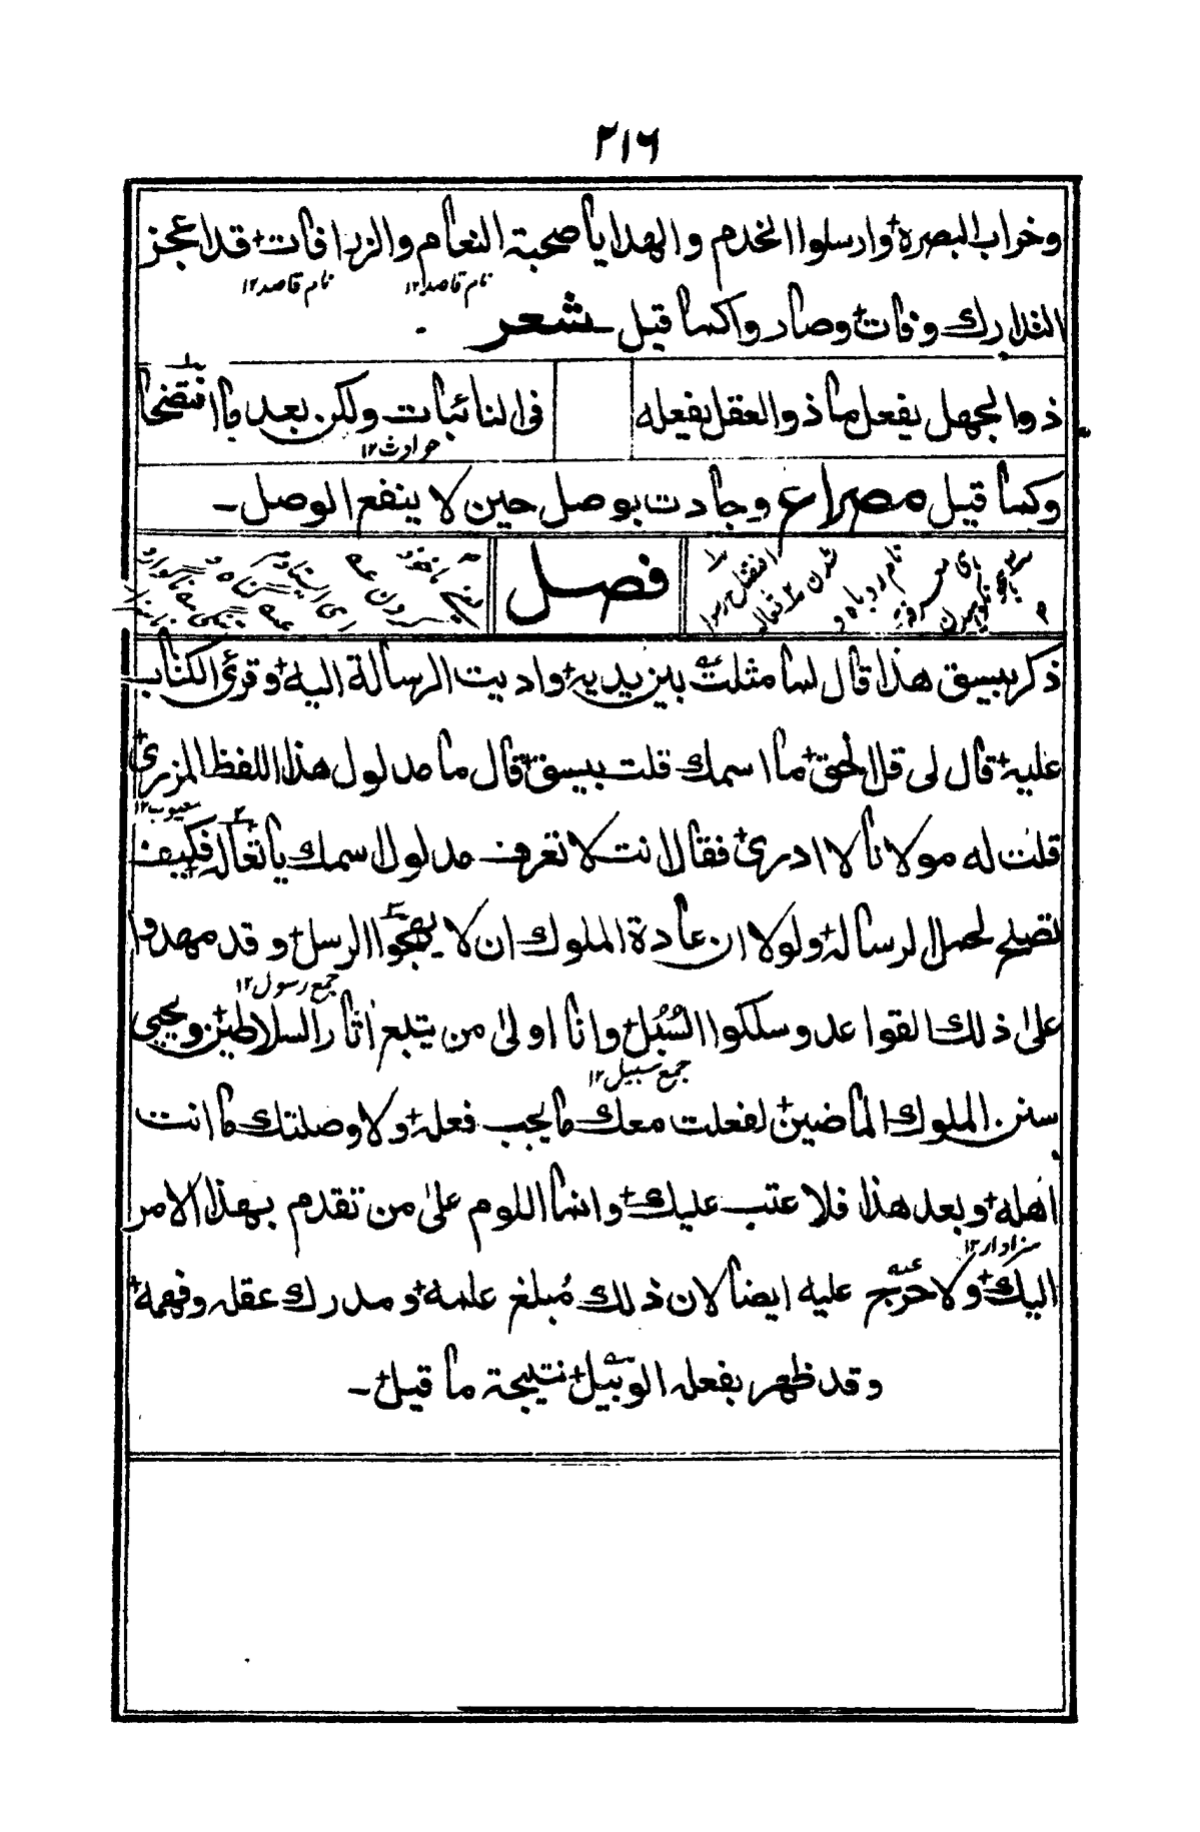 ٢١٦
وخراب البصرة + وارسلوا الخدم والهدايا صحبة النعام والزرافات + قد اعجز
نام قاصد ١٢ نام قاصد ١٢
التدارك وفات + وصار واكما قيل شعر
ذوالجهل يفعل ما ذوالعقل يفعله في النائبات ولكن بعد ما افتضحا
حوادث ١٢
وكما قيل مصراع وجادت بوصل حين لا ينفع الوصل ـ
فصل
ذكر بيسق هذا قال لما مثلت بين يديه + واديت الرسالة اليه + وقرئ الكتاب
عليه + قال لى قل الحق + ما اسمك قلت بيسق + قال ما مدلول هذا اللفظ المزرى +
معيوب ١٢
قلت له مولانا لا ادرى + فقال انت لا تعرف مدلول اسمك يا تعاله فكيف
تصلح لحمل الرسالة + ولولا ان عادة الملوك ان لا يهيجوا الرسل + وقد مهدوا
جمع رسول ١٢
على ذلك القواعد وسلكوا السُبُل + وانا اولى من يتبع اثار السلاطين + ويحيى
جمع سبيل ١٢
سنن الملوك الماضين + لفعلت معك ما يجب فعله + ولا وصلتك ما انت
اهله + وبعد هذا فلا عتب عليك + وانما اللوم على من تقدم بهذا الامر
سزاوار ١٢
اليك + ولا حرج عليه ايضا لان ذلك مُبلغ علمه + ومدرك عقله وفهمه +
وقد ظهر بفعله الوبيل + نتيجة ما قيل + ـ